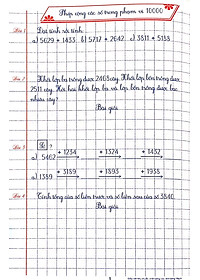 Phép cộng các số trong phạm vi 10000
Bài 1 Đặt tính rồi tính.
a) 5629 + 1433 b) 5717 + 2642 c) 3811 + 5188
Bài 2 Khối lớp ba trồng được 2408 cây. Khối lớp bốn trồng được
2511 cây. Hỏi hai khối lớp ba và lớp bốn trồng được bao
nhiêu cây?
Bài giải
Bài 3 Số ?
+ 1234 + 1324 + 1432
a) 5462
+ 3189 + 1893 + 1938
b) 1389
Bài 4 Tính tổng của số liền trước và số liền sau của số 3840.
Bài giải